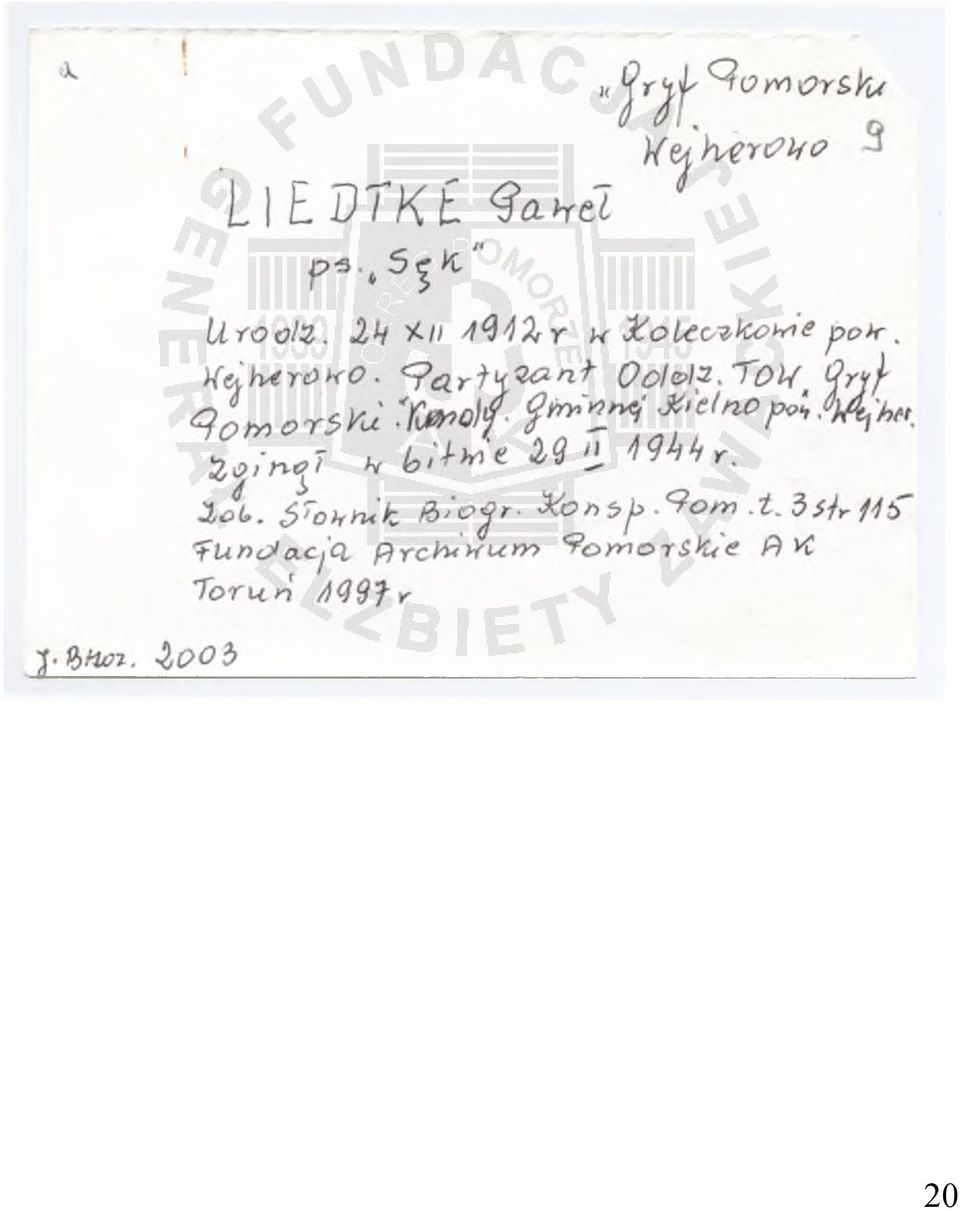 a
„Gryf Pomorski
Wejherowo 9
LIEDTKE Paweł
ps. „Sęk”
Urodz. 24 XII 1912 r w Koleczkowie pow.
Wejherowo. Partyzant Oddz. TOW. Gryf
Pomorski". Komdy. Gminnej Kielno pow. Wejher.
Zginął w bitwie 29 II 1944 r.
Zob. Słownik Biogr. Konsp. Pom. t. 3 str 115
Fundacja Archiwum Pomorskie AK
Toruń 1997 r
2003
FUNDACJA GENERAŁ ELŻBIETY ZAWACKIEJ
1939 1945
20